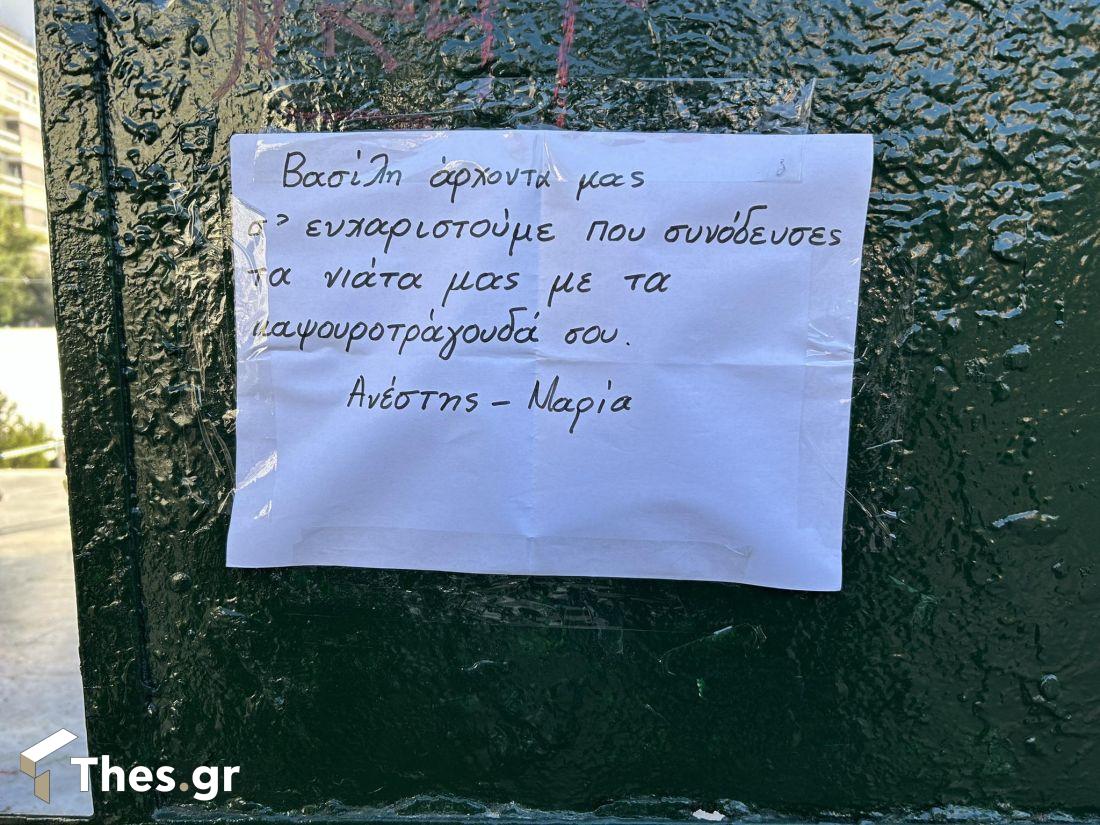 Βασίλη άρχοντα μας
σ' ευχαριστούμε που συνόδευσες
τα νιάτα μας με τα
καψουροτράγουδά σου.
Ανέστης - Μαρία
Thes.gr